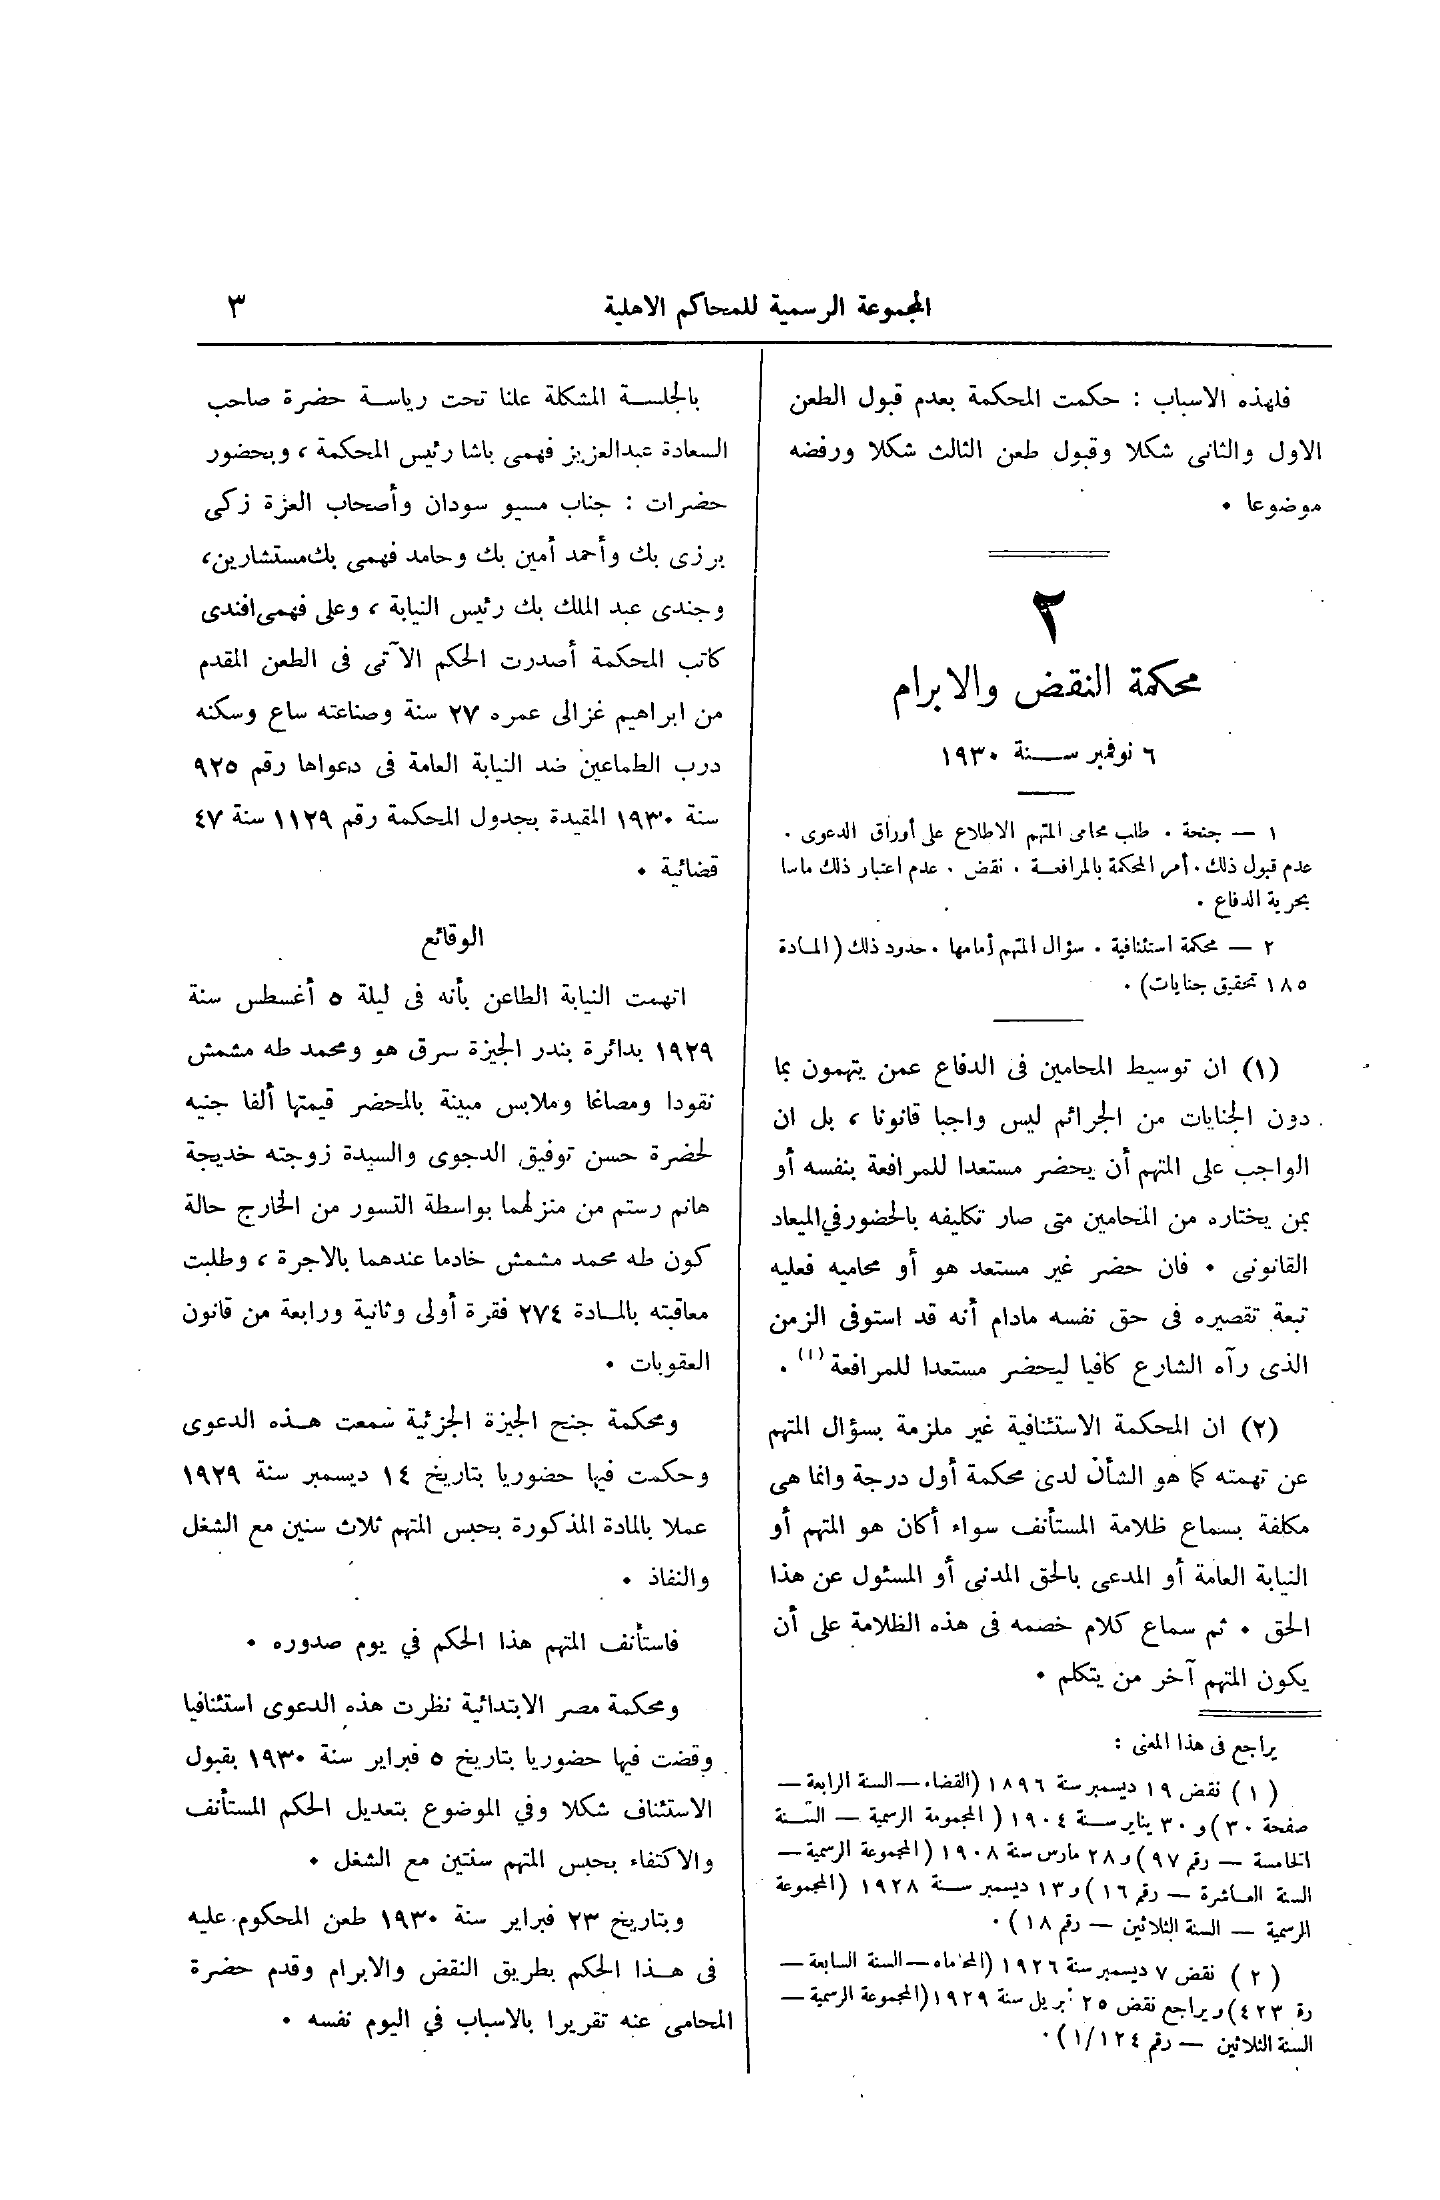 المجموعة الرسمية للمحاكم الاهلية
٣
فلهذه الاسباب : حكمت المحكمة بعدم قبول الطعن
الاول والثانى شكلا وقبول طعن الثالث شكلا ورفضه
موضوعا .
٢
محكمة النقض والابرام
٦ نوفمبر سنة ١٩٣٠
١ — جنحة . طلب محامى المتهم الاطلاع على أوراق الدعوى .
عدم قبول ذلك . أمر المحكمة بالمرافعة . نقض . عدم اعتبار ذلك ماسا
بحرية الدفاع .
٢ — محكمة استئنافية . سؤال المتهم أمامها . حدود ذلك ( المادة
١٨٥ تحقيق جنايات ) .
(١) ان توسيط المحامين فى الدفاع عمن يتهمون بما
دون الجنايات من الجرائم ليس واجبا قانونا ، بل ان
الواجب على المتهم أن يحضر مستعدا للمرافعة بنفسه أو
بمن يختاره من المحامين متى صار تكليفه بالحضور في الميعاد
القانونى . فان حضر غير مستعد هو أو محاميه فعليه
تبعة تقصيره فى حق نفسه مادام أنه قد استوفى الزمن
الذى رآه الشارع كافيا ليحضر مستعدا للمرافعة (١) .
(٢) ان المحكمة الاستئنافية غير ملزمة بسؤال المتهم
عن تهمته كما هو الشأن لدى محكمة أول درجة وانما هى
مكلفة بسماع ظلامة المستأنف سواء أكان هو المتهم أو
النيابة العامة أو المدعى بالحق المدنى أو المسئول عن هذا
الحق . ثم سماع كلام خصمه فى هذه الظلامة على أن
يكون المتهم آخر من يتكلم .
يراجع فى هذا المعنى :
( ١ ) نقض ١٩ ديسمبر سنة ١٨٩٦ (القضاء — السنة الرابعة —
صفحة ٣٠) و ٣٠ يناير سنة ١٩٠٤ ( المجموعة الرسمية — السنة
الخامسة — رقم ٩٧ ) و ٢٨ مارس سنة ١٩٠٨ ( المجموعة الرسمية —
السنة العاشرة — رقم ١٦ ) و ١٣ ديسمبر سنة ١٩٢٨ ( المجموعة
الرسمية — السنة الثلاثين — رقم ١٨ ) .
( ٢ ) نقض ٧ ديسمبر سنة ١٩٢٦ (المحاماه — السنة السابعة —
رة ٤٢٣) ويراجع نقض ٢٥ أبريل سنة ١٩٢٩ (المجموعة الرسمية —
السنة الثلاثين — رقم ١/١٢٤ ) .
بالجلسة المشكلة علنا تحت رياسة حضرة صاحب
السعادة عبدالعزيز فهمى باشا رئيس المحكمة ، وبحضور
حضرات : جناب مسيو سودان وأصحاب العزة زكى
برزى بك وأحمد أمين بك وحامد فهمى بك مستشارين ،
وجندى عبد الملك بك رئيس النيابة ، وعلى فهمى افندى
كاتب المحكمة أصدرت الحكم الآتى فى الطعن المقدم
من ابراهيم غزالى عمره ٢٧ سنة وصناعته ساع وسكنه
درب الطماعين ضد النيابة العامة فى دعواها رقم ٩٢٥
سنة ١٩٣٠ المقيدة بجدول المحكمة رقم ١١٢٩ سنة ٤٧
قضائية .
الوقائع
اتهمت النيابة الطاعن بأنه فى ليلة ٥ أغسطس سنة
١٩٢٩ بدائرة بندر الجيزة سرق هو ومحمد طه مشمش
نقودا ومصاغا وملابس مبينة بالمحضر قيمتها ألفا جنيه
لحضرة حسن توفيق الدجوى والسيدة زوجته خديجة
هانم رستم من منزلهما بواسطة التسور من الخارج حالة
كون طه محمد مشمش خادما عندهما بالاجرة ، وطلبت
معاقبته بالمادة ٢٧٤ فقرة أولى وثانية ورابعة من قانون
العقوبات .
ومحكمة جنح الجيزة الجزئية سمعت هذه الدعوى
وحكمت فيها حضوريا بتاريخ ١٤ ديسمبر سنة ١٩٢٩
عملا بالمادة المذكورة بحبس المتهم ثلاث سنين مع الشغل
والنفاذ .
فاستأنف المتهم هذا الحكم في يوم صدوره .
ومحكمة مصر الابتدائية نظرت هذه الدعوى استئنافيا
وقضت فيها حضوريا بتاريخ ٥ فبراير سنة ١٩٣٠ بقبول
الاستئناف شكلا وفي الموضوع بتعديل الحكم المستأنف
والاكتفاء بحبس المتهم سنتين مع الشغل .
وبتاريخ ٢٣ فبراير سنة ١٩٣٠ طعن المحكوم عليه
فى هذا الحكم بطريق النقض والابرام وقدم حضرة
المحامى عنه تقريرا بالاسباب في اليوم نفسه .